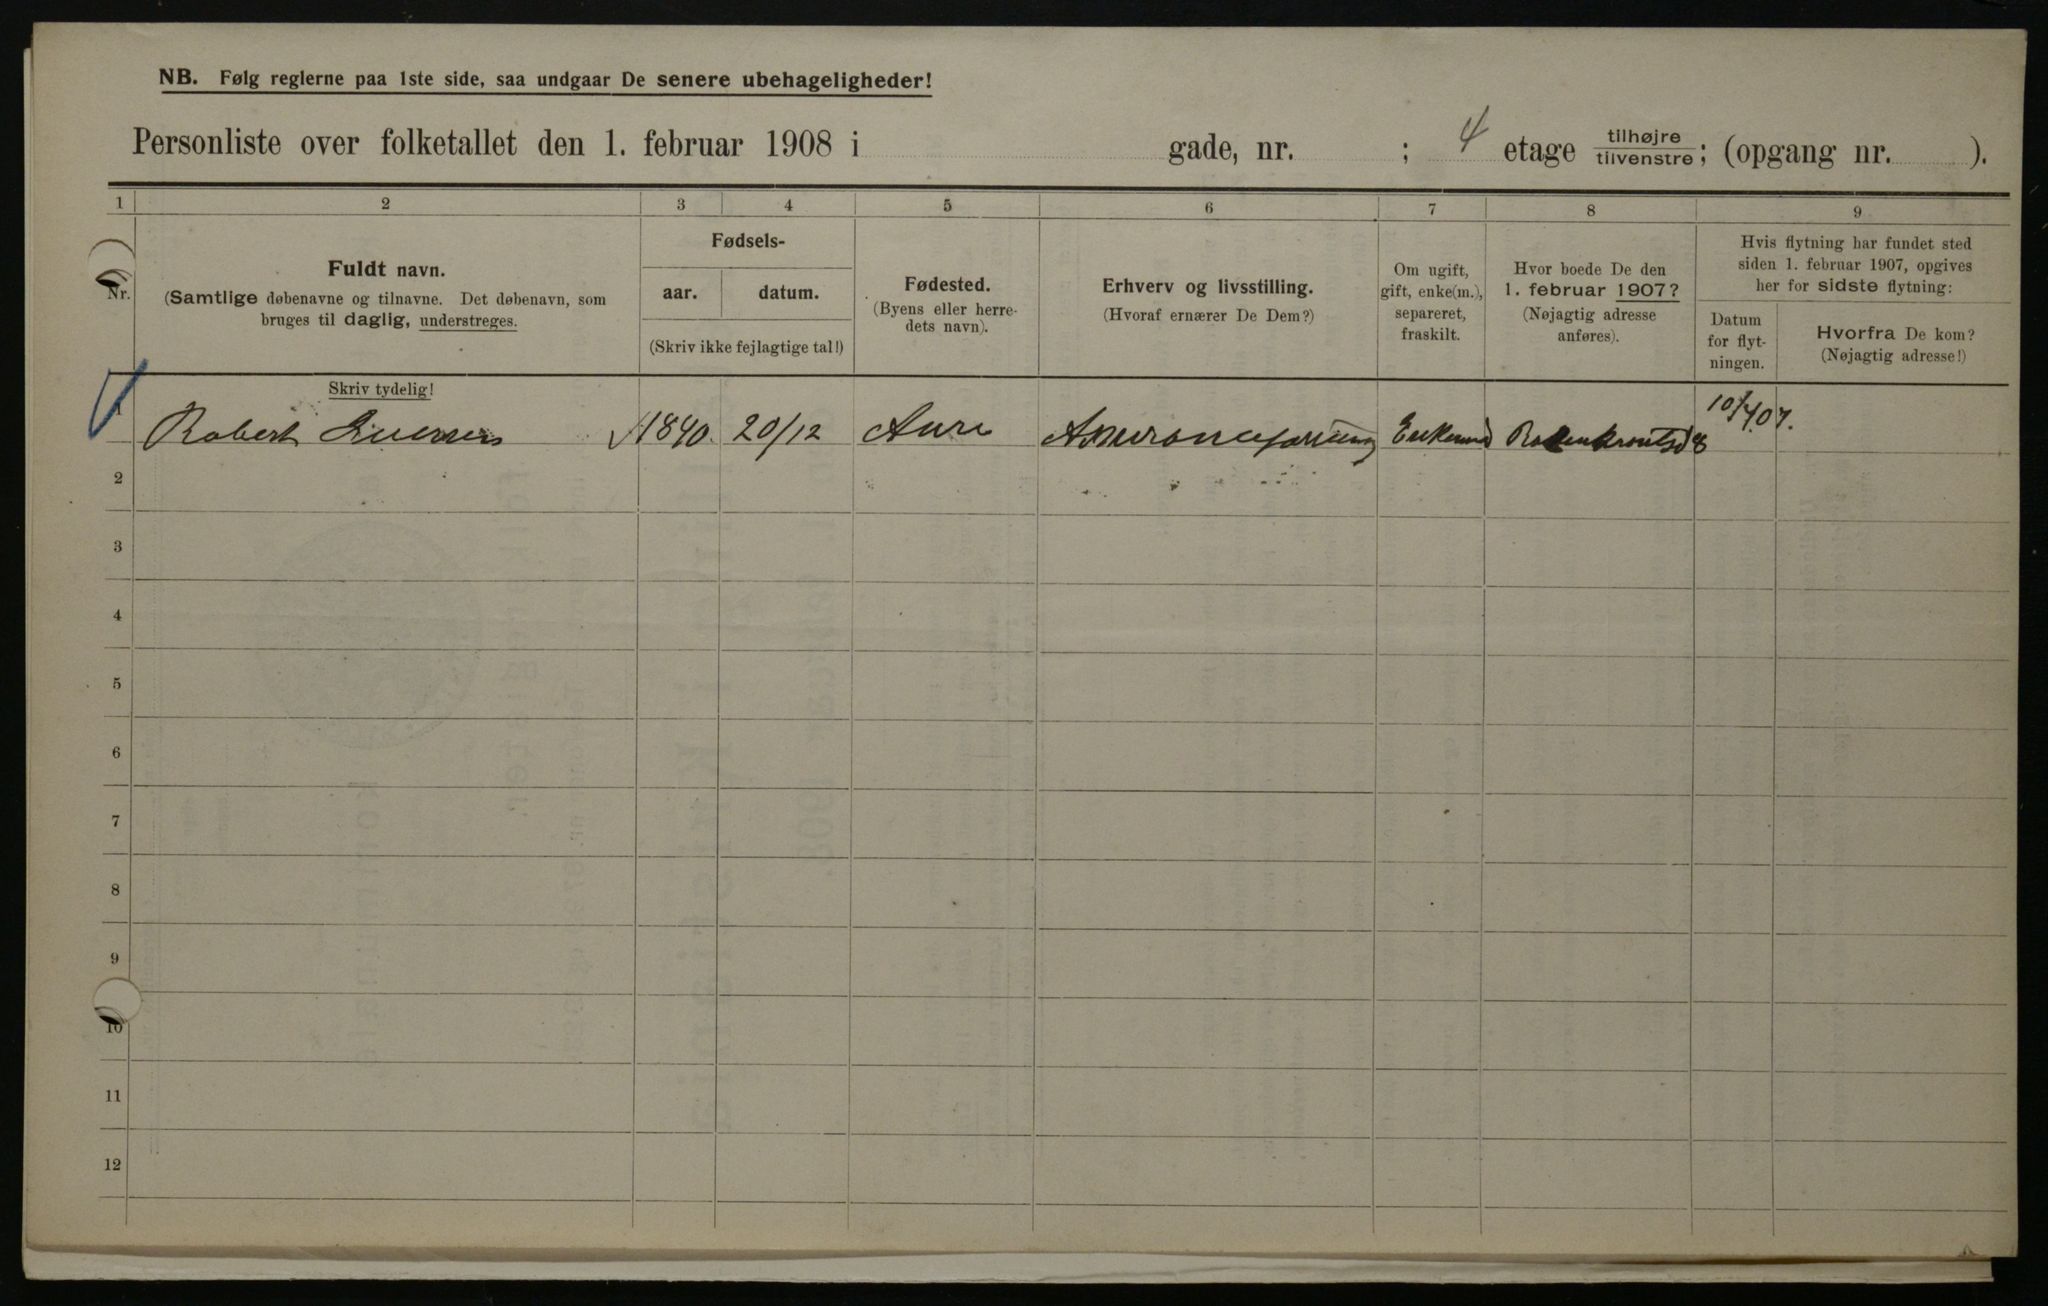 NB. Følg reglerne paa 1ste side, saa undgaar De senere ubehageligheder!
Personliste over folketallet den 1. februar 1908 i gade, nr. ; 4 etage tilhøjre/tilvenstre; (opgang nr. ).
1 2 3 4 5 6 7 8 9
Nr.
Fuldt navn.
(Samtlige døbenavne og tilnavne. Det døbenavn, som
bruges til daglig, understreges.
Skriv tydelig!
Fødsels-
aar. datum.
(Skriv ikke fejlagtige tal!)
Fødested.
(Byens eller herre-
dets navn).
Erhverv og livsstilling.
(Hvoraf ernærer De Dem?)
Om ugift,
gift, enke(m.),
separeret,
fraskilt.
Hvor boede De den
1. februar 1907?
(Nøjagtig adresse
anføres).
Hvis flytning har fundet sted
siden 1. februar 1907, opgives
her for sidste flytning:
Datum
for flyt-
ningen.
Hvorfra De kom?
(Nøjagtig adresse!)
1 Robert 1840 20/12 Aure Enkemand 10/4 07.
2
3
4
5
6
7
8
9
10
11
12